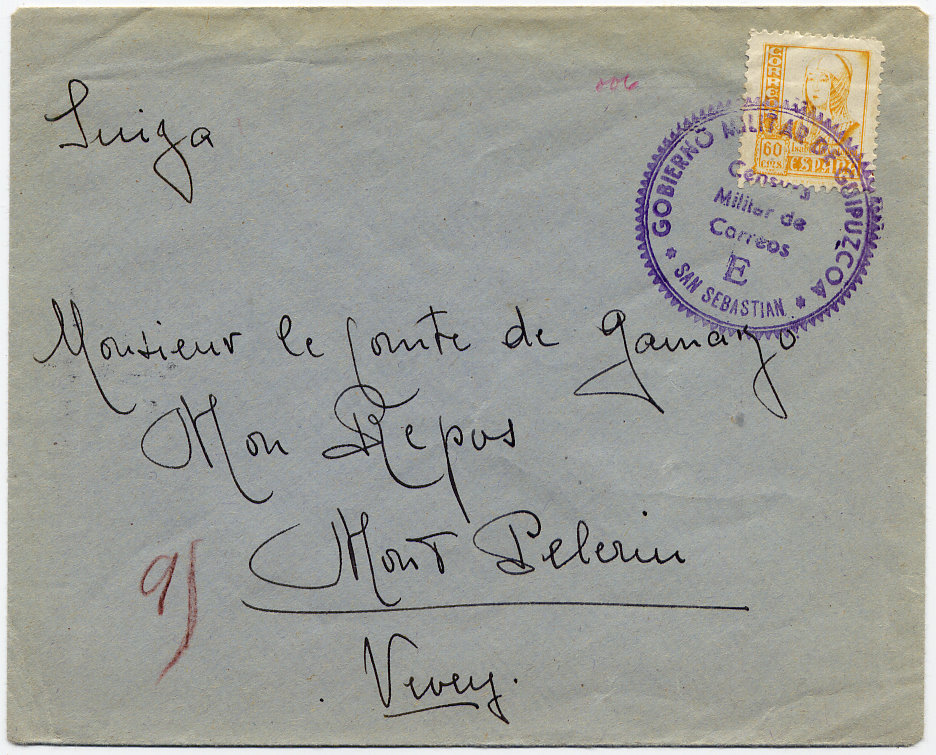 Suiza
006
CORREOS
60
cts.
Isabel
ESPAÑA
GOBIERNO MILITAR DE GUIPUZCOA
Censura
Militar de
Correos
E
* SAN SEBASTIAN *
Monsieur le Comte de Gamazo
Mon Repos
Mont Pelerin
Vevey.